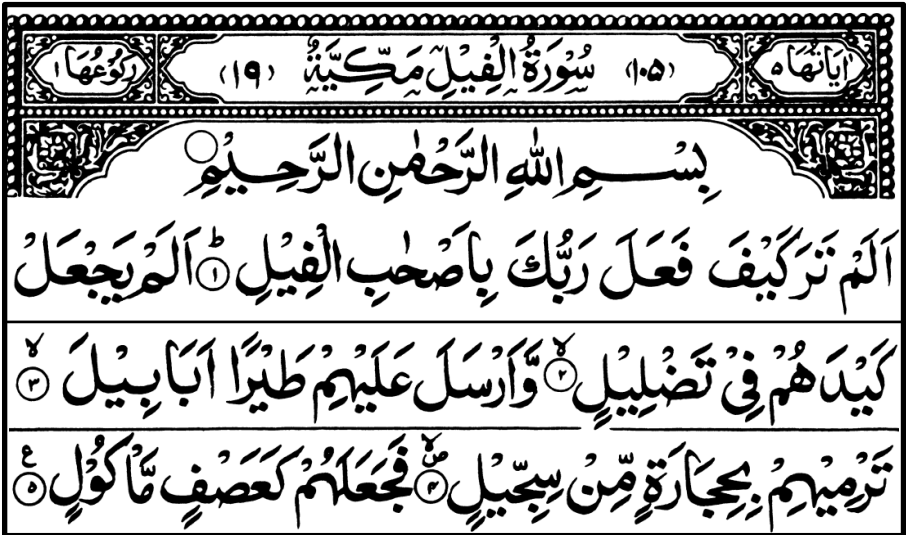 اٰيَاتُهَا ٥ (١٠٥) سُوْرَةُ الْفِيْلِ مَكِّيَّةٌ (١٩) رُكُوْعُهَا ١
بِسْمِ اللهِ الرَّحْمٰنِ الرَّحِيْمِ ۝
اَلَمْ تَرَ كَيْفَ فَعَلَ رَبُّكَ بِاَصْحٰبِ الْفِيْلِ ؕ١ اَلَمْ يَجْعَلْ
كَيْدَهُمْ فِيْ تَضْلِيْلٍ ۙ٢ وَّاَرْسَلَ عَلَيْهِمْ طَيْرًا اَبَابِيْلَ ۙ٣
تَرْمِيْهِمْ بِحِجَارَةٍ مِّنْ سِجِّيْلٍ ۪ۙ٤ فَجَعَلَهُمْ كَعَصْفٍ مَّاْكُوْلٍ ع ٥